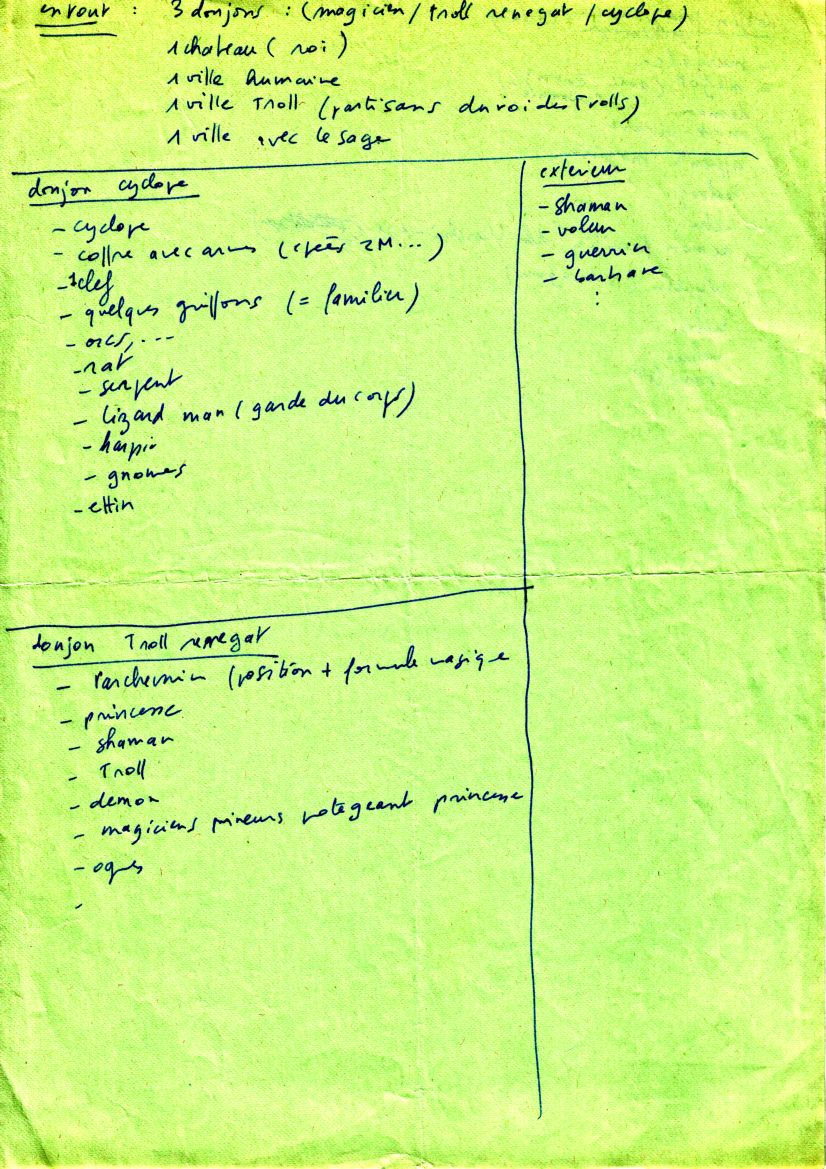 en tout : 3 donjons : (magicien / troll renegat / cyclope)
1 chateau ( roi )
1 ville humaine
1 ville Troll (partisans du roi des Trolls)
1 ville avec le sage
donjon cyclope
- cyclope
- coffre avec armes (épées 2M...)
- 1 clef
- quelques griffons (= familier)
- orcs, ...
- rat
- serpent
- lizard man (garde du corps)
- harpie
- gnomes
- ettin
exterieur
- shaman
- voleur
- guerrier
- barbare
:
donjon Troll renegat
- Parchemin (position + formule magique
- princesse
- shaman
- Troll
- demon
- magiciens mineurs protegeant princesse
- ogres
-